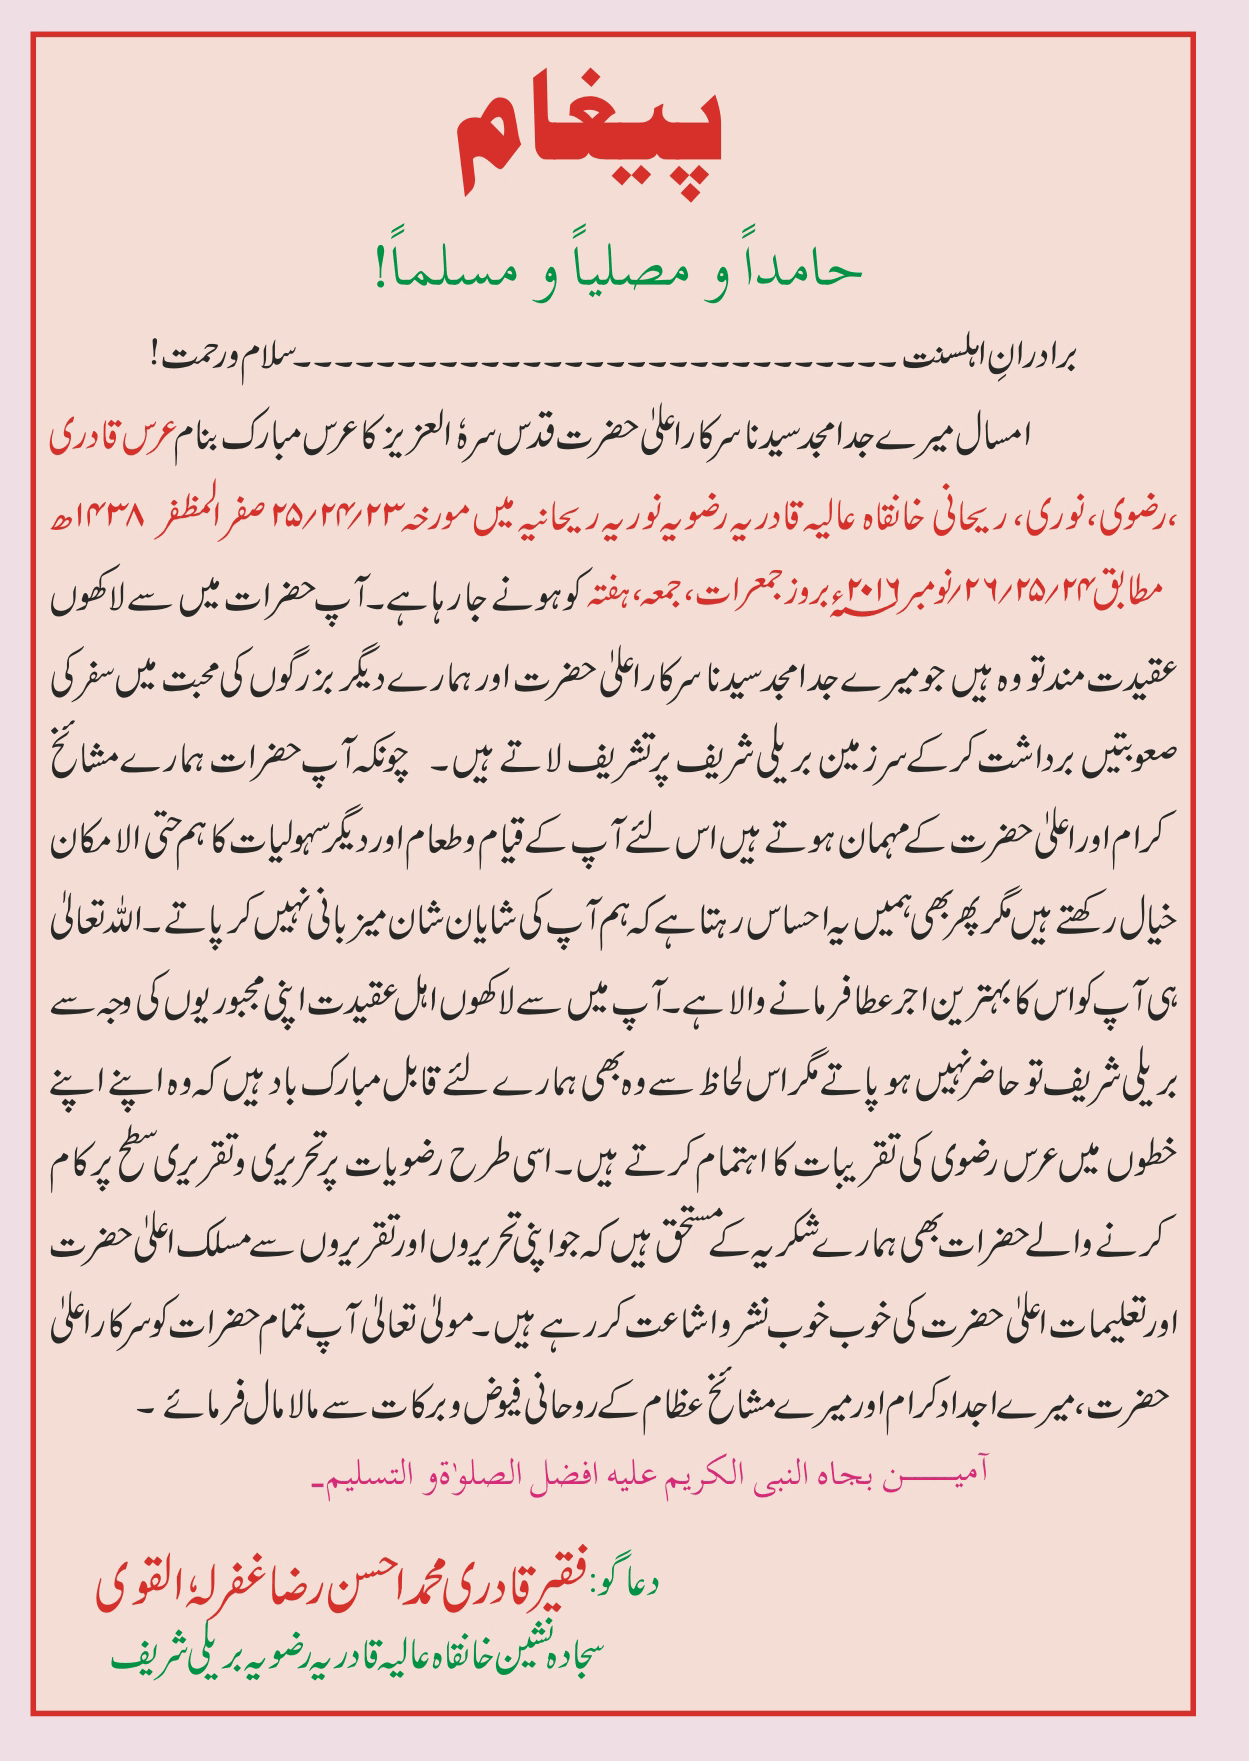 پیغام
حامداً و مصلیاً و مسلماً!
برادرانِ اہلسنت ـ ـ ـ ـ ـ ـ ـ ـ ـ ـ ـ ـ ـ ـ ـ ـ ـ ـ ـ ـ ـ ـ ـ ـ ـ ـ ـ ـ ـ سلام ورحمت!
امسال میرے جدامجد سیدنا سرکار اعلیٰ حضرت قدس سرہٗ العزیز کا عرس مبارک بنام عرس قادری
،رضوی، نوری، ریحانی خانقاہ عالیہ قادریہ رضویہ نوریہ ریحانیہ میں مورخہ ۲۳؍۲۴؍۲۵ صفر المظفر ۱۴۳۸ھ
مطابق ۲۴؍۲۵؍۲۶؍نومبر ۲۰۱۶ء بروز جمعرات، جمعہ، ہفتہ کو ہونے جارہا ہے۔ آپ حضرات میں سے لاکھوں
عقیدت مند تو وہ ہیں جو میرے جدامجد سیدنا سرکار اعلیٰ حضرت اور ہمارے دیگر بزرگوں کی محبت میں سفر کی
صعوبتیں برداشت کرکے سرزمین بریلی شریف پر تشریف لاتے ہیں۔ چونکہ آپ حضرات ہمارے مشائخ
کرام اور اعلیٰ حضرت کے مہمان ہوتے ہیں اس لئے آپ کے قیام وطعام اور دیگر سہولیات کا ہم حتی الامکان
خیال رکھتے ہیں مگر پھر بھی ہمیں یہ احساس رہتا ہے کہ ہم آپ کی شایان شان میزبانی نہیں کر پاتے۔ اللہ تعالیٰ
ہی آپ کو اس کا بہترین اجر عطا فرمانے والا ہے۔ آپ میں سے لاکھوں اہل عقیدت اپنی مجبوریوں کی وجہ سے
بریلی شریف تو حاضر نہیں ہو پاتے مگر اس لحاظ سے وہ بھی ہمارے لئے قابل مبارک باد ہیں کہ وہ اپنے اپنے
خطوں میں عرس رضوی کی تقریبات کا اہتمام کرتے ہیں۔ اسی طرح رضویات پر تحریری وتقریری سطح پر کام
کرنے والے حضرات بھی ہمارے شکریہ کے مستحق ہیں کہ جو اپنی تحریروں اور تقریروں سے مسلک اعلیٰ حضرت
اور تعلیمات اعلیٰ حضرت کی خوب خوب نشر واشاعت کررہے ہیں۔ مولیٰ تعالیٰ آپ تمام حضرات کو سرکار اعلیٰ
حضرت، میرے اجداد کرام اور میرے مشائخ عظام کے روحانی فیوض وبرکات سے مالا مال فرمائے ۔
آمیــــن بجاہ النبی الکریم علیہ افضل الصلوٰۃ و التسلیم۔
دعا گو: فقیر قادری محمد احسن رضا غفرلہٗ القوی
سجادہ نشین خانقاہ عالیہ قادریہ رضویہ بریلی شریف